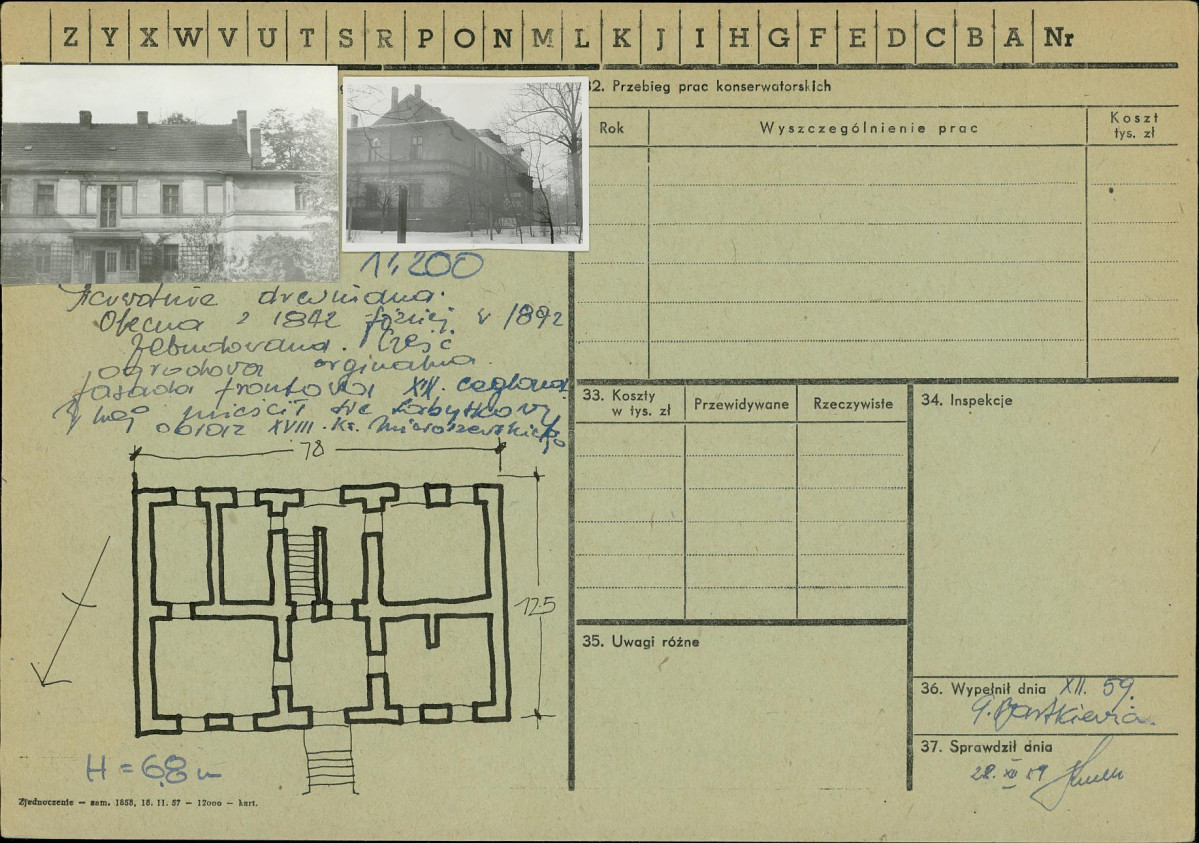 Z Y X W V U T S R P O N M L K J I H G F E D C B A Nr
32. Przebieg prac konserwatorskich
Rok
Wyszczególnienie prac
Koszt
tys. zł
11,200
drewniana.
Obecna z 1842 później w 1892
Część
ogrodowa orginalna.
fasada frontowa XIX. ceglana.
W niej mieścił się zabytkowy
obraz XVIII. Ks. Mieroszewskiego
78
12.5
H = 6,8 m
33. Koszty
w tys. zł
Przewidywane
Rzeczywiste
34. Inspekcje
35. Uwagi różne
36. Wypełnił dnia XII. 59.
37. Sprawdził dnia
28. XII 59
Zjednoczenie — zam. 1858, 18. II. 57 — 12000 — kart.